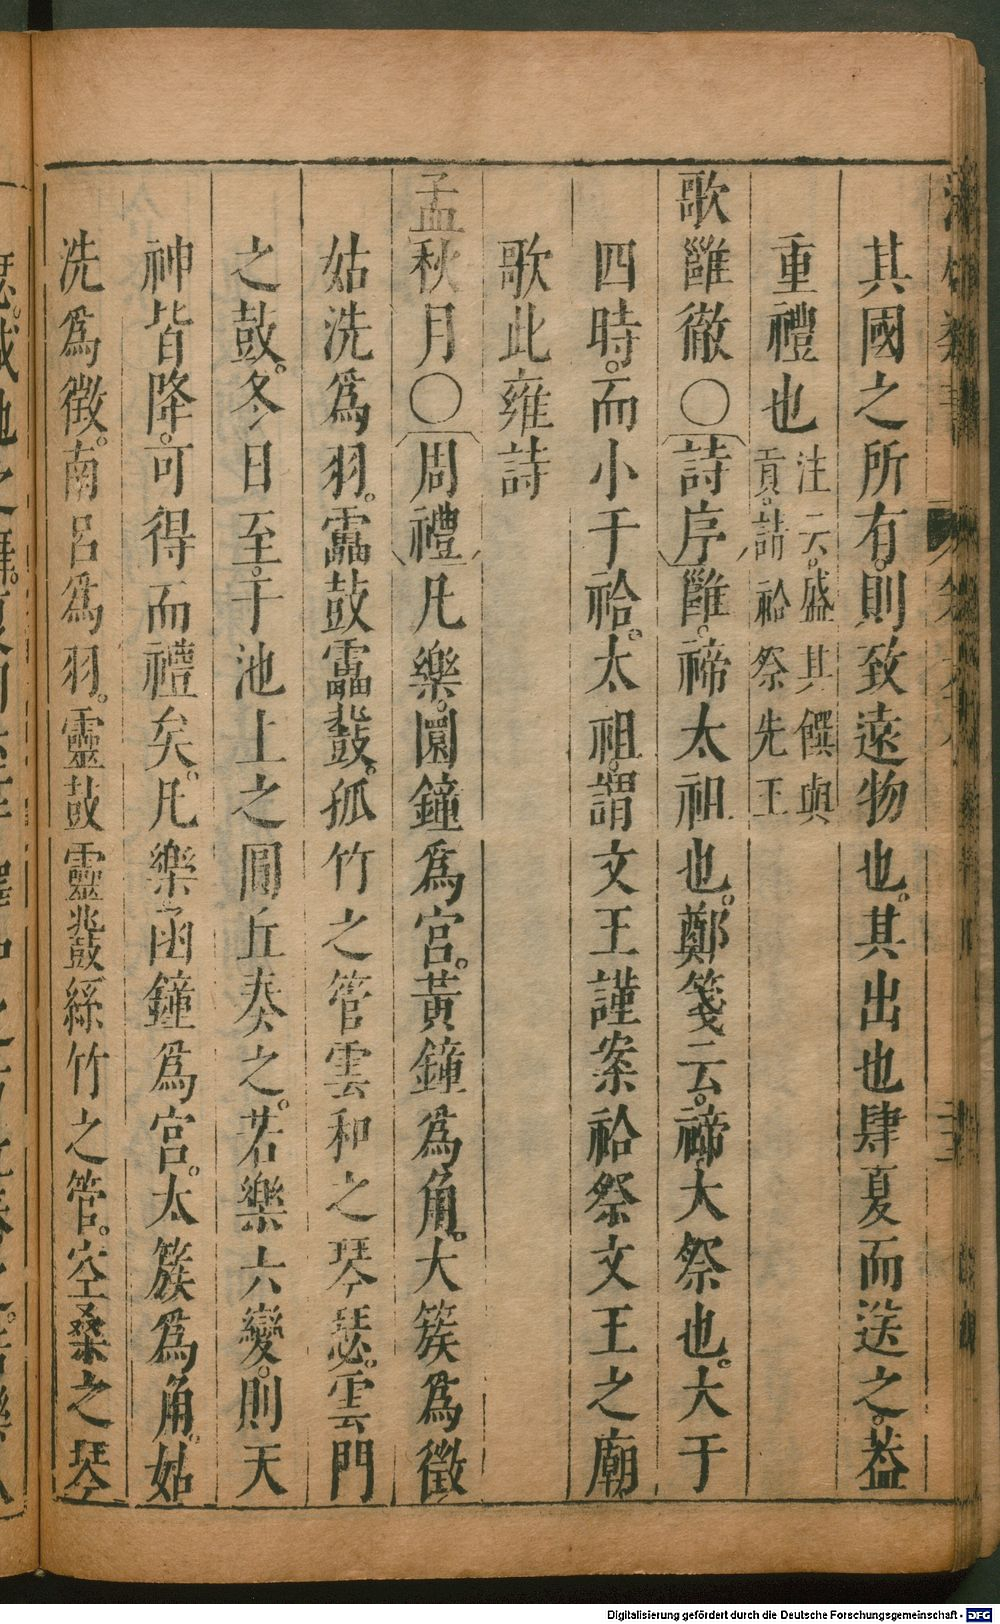 其國之所有。則致遠物也。其出也肆夏而送之。葢
重禮也注云。盛其饌與貢。詰祫祭先王
歌雝徹○〔詩序〕雝。禘太祖也。鄭箋云。禘大祭也。大于
四時。而小于祫。太祖。謂文王謹案祫祭文王之廟
歌此雍詩
孟秋月○〔周禮〕凡樂。圜鐘爲宮。黃鐘爲角。大簇爲徵
姑洗爲羽。靁鼓靁鼗。孤竹之管雲和之琴瑟。雲門
之鼓。冬日至。于池上之圓丘奏之。若樂六變。則天
神皆降。可得而禮矣。凡樂函鐘爲宮。太簇爲角。姑
洗爲徵。南呂爲羽。靈鼓靈鼗絲竹之管。空桑之琴
Digitalisierung gefördert durch die Deutsche Forschungsgemeinschaft - DFG